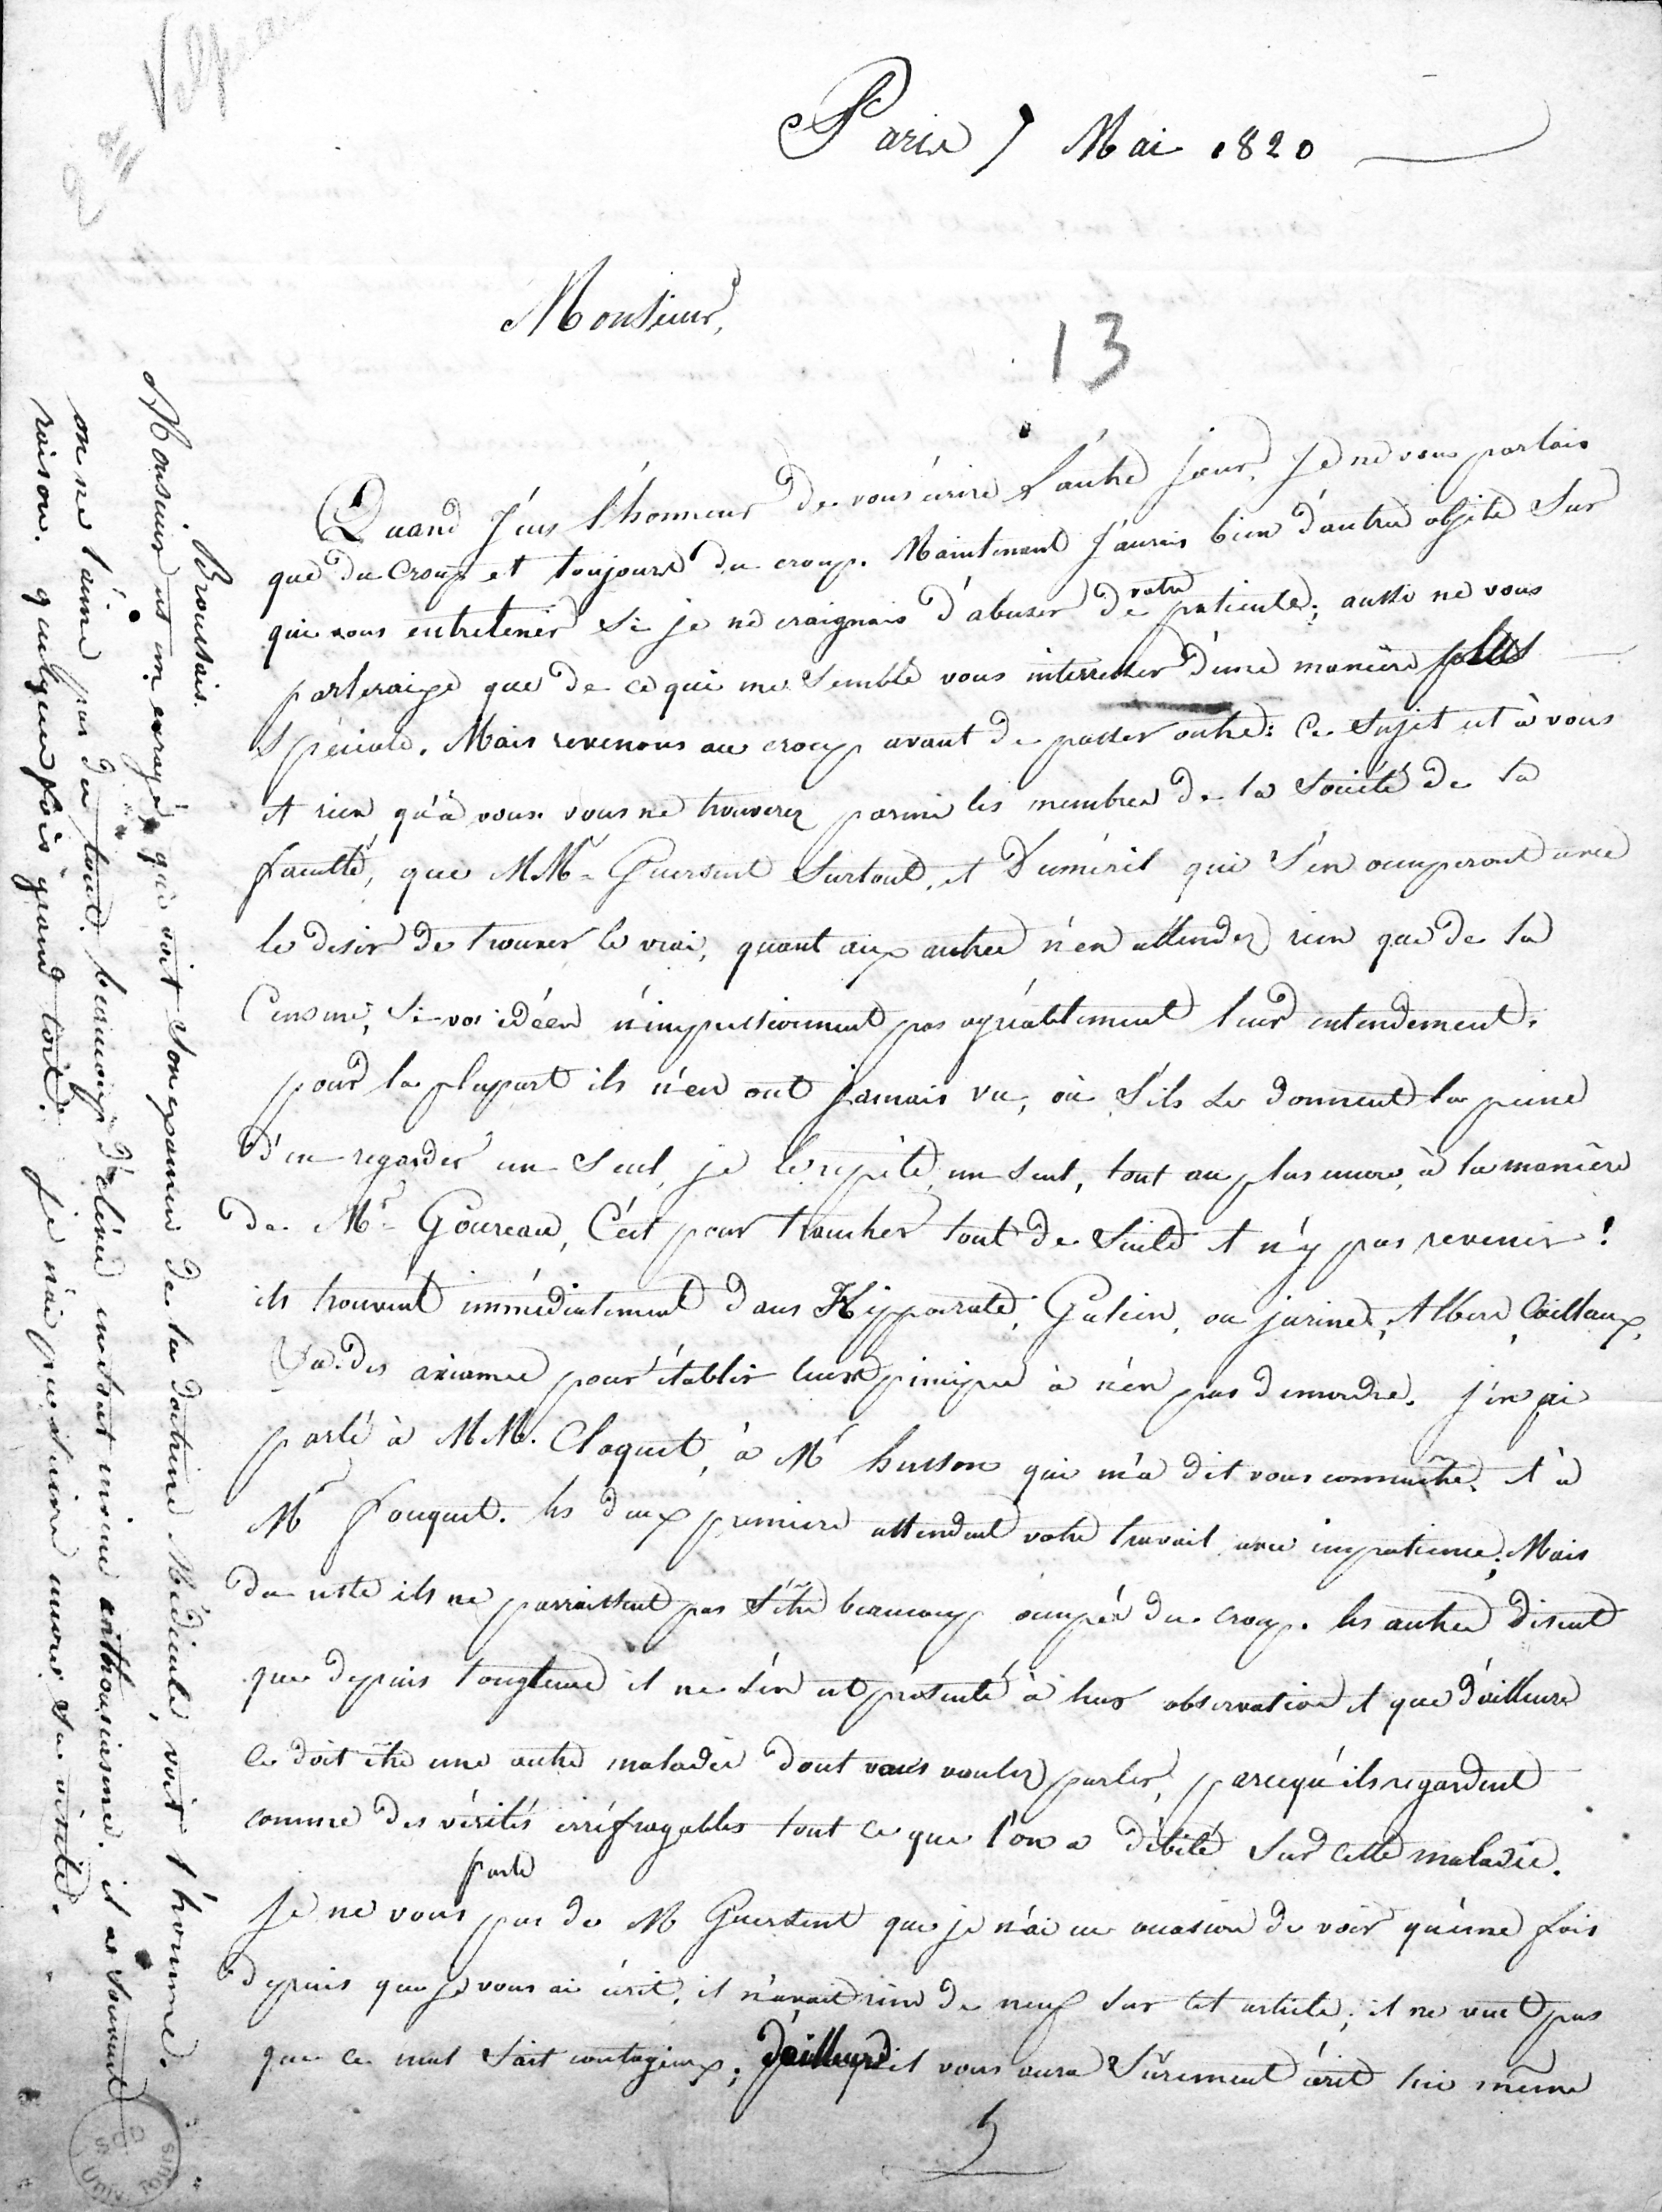 Velpeau
2e
Paris 7 Mai 1820
Monsieur,
13
Quand j'eus l'honneur de vous écrire l'autre jour, je ne vous parlais
que du croup et toujours du croup. Maintenant j'aurais bien d'autres objets sur
qui vous entretenir si je ne craignais d'abuser de votre patience; aussi ne vous
parleraije que de ce qui me semble vous interresser d'une manière plus
spéciale. Mais revenons au croup avant de passer outre: ce sujet est à vous
et rien qu'à vous. vous ne trouverez parmi les membres de la société de la
faculté, que MMrs Guersent surtout, et Duméril qui s'en occuperont avec
le desir de trouver le vrai, quant aux autres n'en attendez rien que de la
censure, si vos idées n'impressionnent pas agréablement leur entendement.
pour la plupart ils n'en ont jamais vu, où s'ils se donnent la peine
d'en regarder un seul, je le repète, un seul, tout au plus encore, à la manière
de Mr Goureau, c'est pour trancher tout de suite et n'y pas revenir!
ils trouvent immédiatement dans Hippocrate, Galien, ou jurine, Albers, Caillaux,
des axiomes pour établir leurs principes à n'en pas demordre. j'en ai
parlé à MM. Cloquet, à Mr husson qui m'a dit vous connaître, et à
Mr fouquet. les deux premiers attendent votre travail avec impatience. Mais
du reste ils ne parraissent pas s'être beaucoup occupés du croup. les autres disent
que depuis longtems il ne s'en est présenté à leur observation et que d'ailleurs
ce doit être une autre maladie dont vous voulez parler, parcequ'ils regardent
comme des vérités irréfragables tout ce que l'on a débité sur cette maladie.
je ne vous parle pas de M Guersent que je n'ai eu occasion de voir qu'une fois
depuis que je vous ai écrit. il n'avait rien de neuf sur cet article; il ne veut pas
que ce mal soit contagieux; d'ailleurs il vous aura sûrement écrit lui même
Broussais.
Monsieur est un enragé, qui voit son examen de la doctrine Médicale, voit l'homme.
on ne l'aime pas du tout. beaucoup d'élèves en tout même enthousiasme. il a souvent
raison. quelquefois grand tort. je n'ai pu suivre encore sa
SCD
Univ. Tours